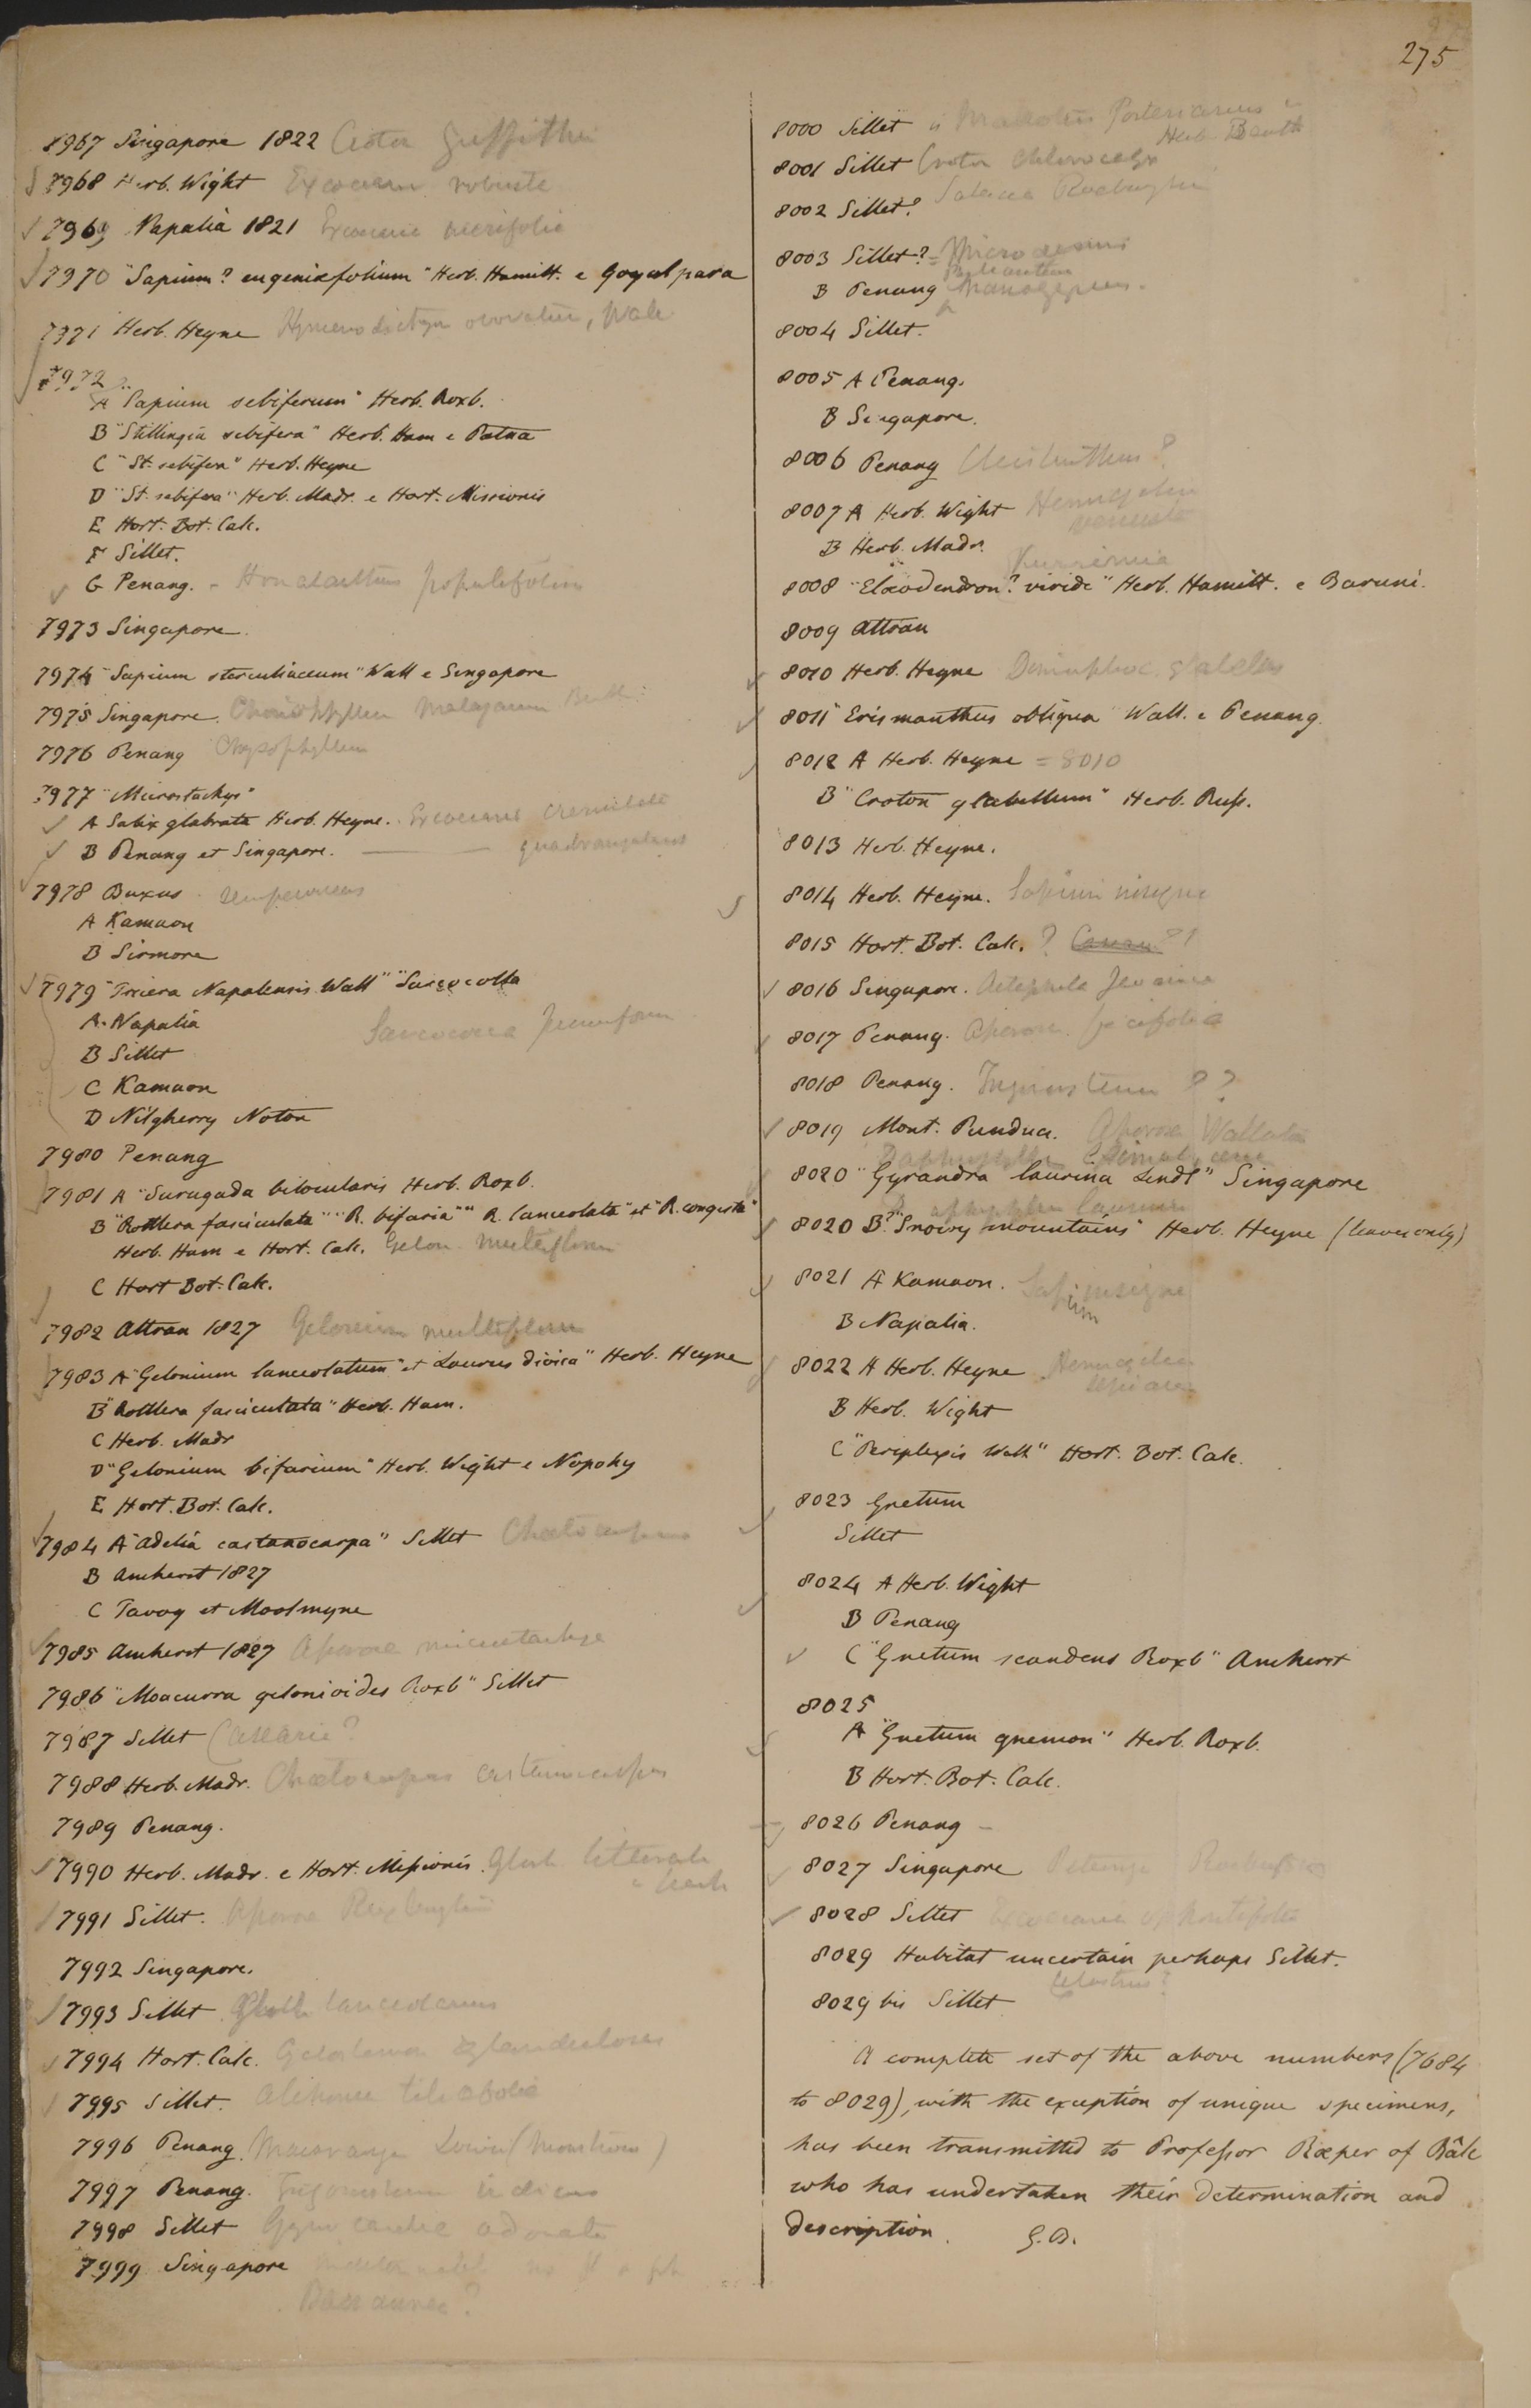 275
7967 Singapore 1822 Croton Griffithii
7968 Herb. Wight Excoecaria robusta
7969 Napalia 1821 Excoecaria acerifolia
7970 "Sapium? eugeniæfolium" Herb. Hamilt. e Goyalpara
7971 Herb. Heyne Hymenodictyon obovatum, Wall
7972
A "Sapium sebiferum" Herb. Roxb.
B "Stillingia sebifera" Herb. Ham e Patna
C "St. sebifera" Herb. Heyne
D "St. sebifera" Herb. Madr. e Hort. Missionis
E Hort. Bot. Calc.
F Sillet.
G Penang. - Homalanthus populifolius
7973 Singapore.
7974 "Sapium sterculiaceum" Wall e Singapore
7975 Singapore. Malayanum Benth.
7976 Penang Chrysophyllum
7977 "Microstachys"
A Salix glabrata Herb. Heyne. Excoecaria crenulata
B Penang et Singapore. ——— quadrangularis
7978 Buxus sempervirens
A Kamaon
B Sirmore
7979 "Tricera Napalensis Wall" "Sarcocolla
A. Napalia Sarcococca pruniformis
B Sillet
C Kamaon
D Nilgherry Noton
7980 Penang
7981 A "Suregada bilocularis Herb. Roxb.
B "Rottlera fasciculata" "R. bifaria" "R. lanceolata" et "R. congesta"
Herb. Ham e Hort. Calc. Gelon. multiflorum
C Hort Bot. Calc.
7982 Attran 1827 Gelonium multiflorum
7983 A "Gelonium lanceolatum" et Laurus dioica" Herb. Heyne
B "Rottlera fasciculata" Herb. Ham.
C Herb. Madr
D "Gelonium bifarium" Herb. Wight e Nopoky
E Hort. Bot. Calc.
7984 A "Adelia castanocarpa" Sillet Chaetocarpus
B Amherst 1827
C Tavoy et Moolmyne
7985 Amherst 1827 Aporosa microstachya
7986 "Moacurra gelonioides Roxb" Sillet
7987 Sillet Casearia?
7988 Herb. Madr. Chaetocarpus castanocarpus
7989 Penang.
7990 Herb. Madr. e Hort. Missionis. Gloch. littorale
7991 Sillet. Aporosa Roxburghii
7992 Singapore.
7993 Sillet Gloch lanceolarium
7994 Hort. Calc. Gelonium
7995 Sillet. tiliaefolia
7996 Penang. Macaranga Lowii
7997 Penang. Trigonostemon indicus
7998 Sillet Gynocardia odorata
7999 Singapore
8000 Sillet is Mallotus Porterianus in
Herb Benth
8001 Sillet Croton chlorocalyx
8002 Sillet? Salacia Roxburghii
8003 Sillet? = Microdesmis
B Penang
8004 Sillet.
8005 A Penang.
B Singapore.
8006 Penang Cleistanthus?
8007 A Herb. Wight Hemicyclia
venusta
B Herb. Madr.
Kurrimia
8008 "Elæodendron? viride" Herb. Hamilt. e Baruni.
8009 Attran
8010 Herb. Heyne
8011 "Erismanthus obliqua" Wall. e Penang.
8012 A Herb. Heyne = 8010
B "Croton glabellum" Herb. Russ.
8013 Herb. Heyne.
8014 Herb. Heyne. Sapium insigne
8015 Hort. Bot. Calc. ?
8016 Singapore. Actephila Javanica
8017 Penang. Aporosa
8018 Penang. ? ?
8019 Mont. Pundua. Aporosa Wallichii
8020 "Gyrandra laurina Lindl" Singapore
8020 B? "Snowy mountains" Herb. Heyne (leaves only)
8021 A Kamaon. Sapium insigne
B Napalia.
8022 A Herb. Heyne Hemicyclia
sepiaria
B Herb. Wight
C "Periplexis Wall" Hort. Bot. Calc.
8023 Gnetum
Sillet
8024 A Herb. Wight
B Penang
C "Gnetum scandens Roxb" Amherst
8025
A "Gnetum gnemon" Herb. Roxb.
B Hort. Bot. Calc.
8026 Penang –
8027 Singapore Petunga Roxburghii
8028 Sillet Excoecaria oppositifolia
8029 Habitat uncertain perhaps Sillet.
Celastrus?
8029 bis Sillet
A complete set of the above numbers (7684
to 8029), with the exception of unique specimens,
has been transmitted to Professor Rœper of Bâle
who has undertaken their determination and
description. G. B.